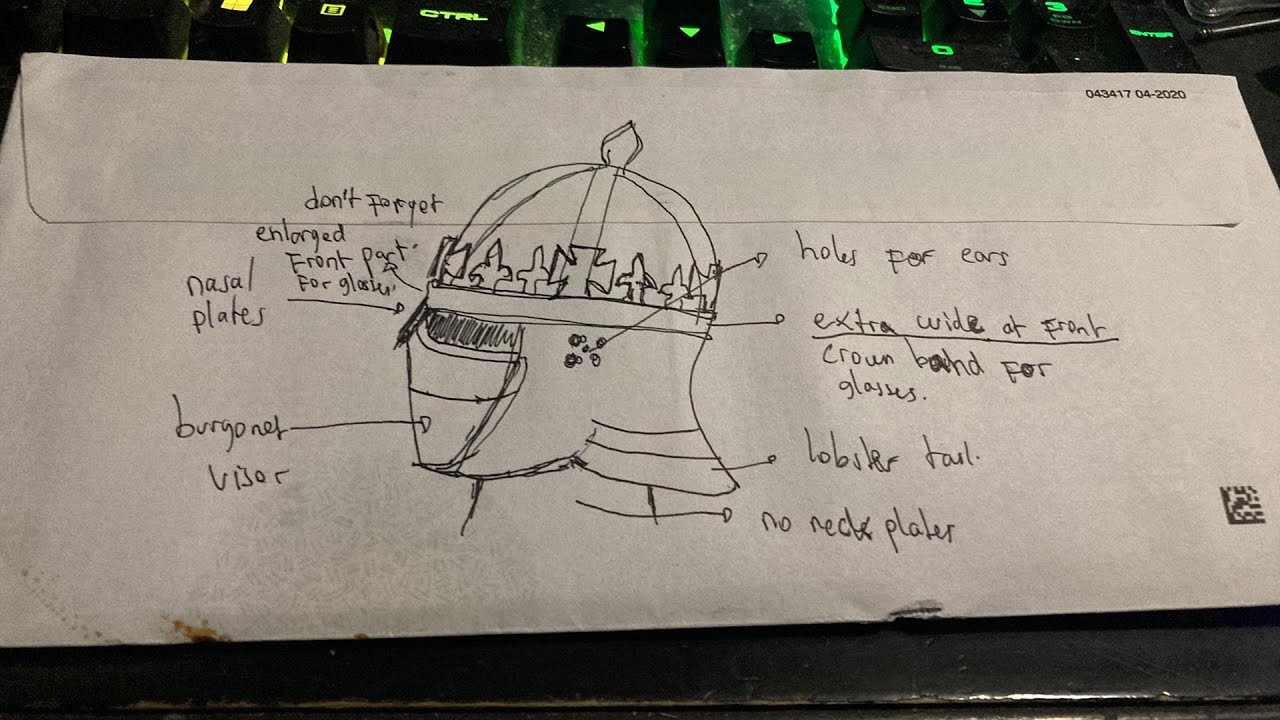 CTRL
0
3
ENTER
043417 04-2020
don't forget
enlarged
front part
for glasses.
nasal
plates
burgonet
visor
holes for ears
extra wide at front
crown band for
glasses.
lobster tail.
no neck plates